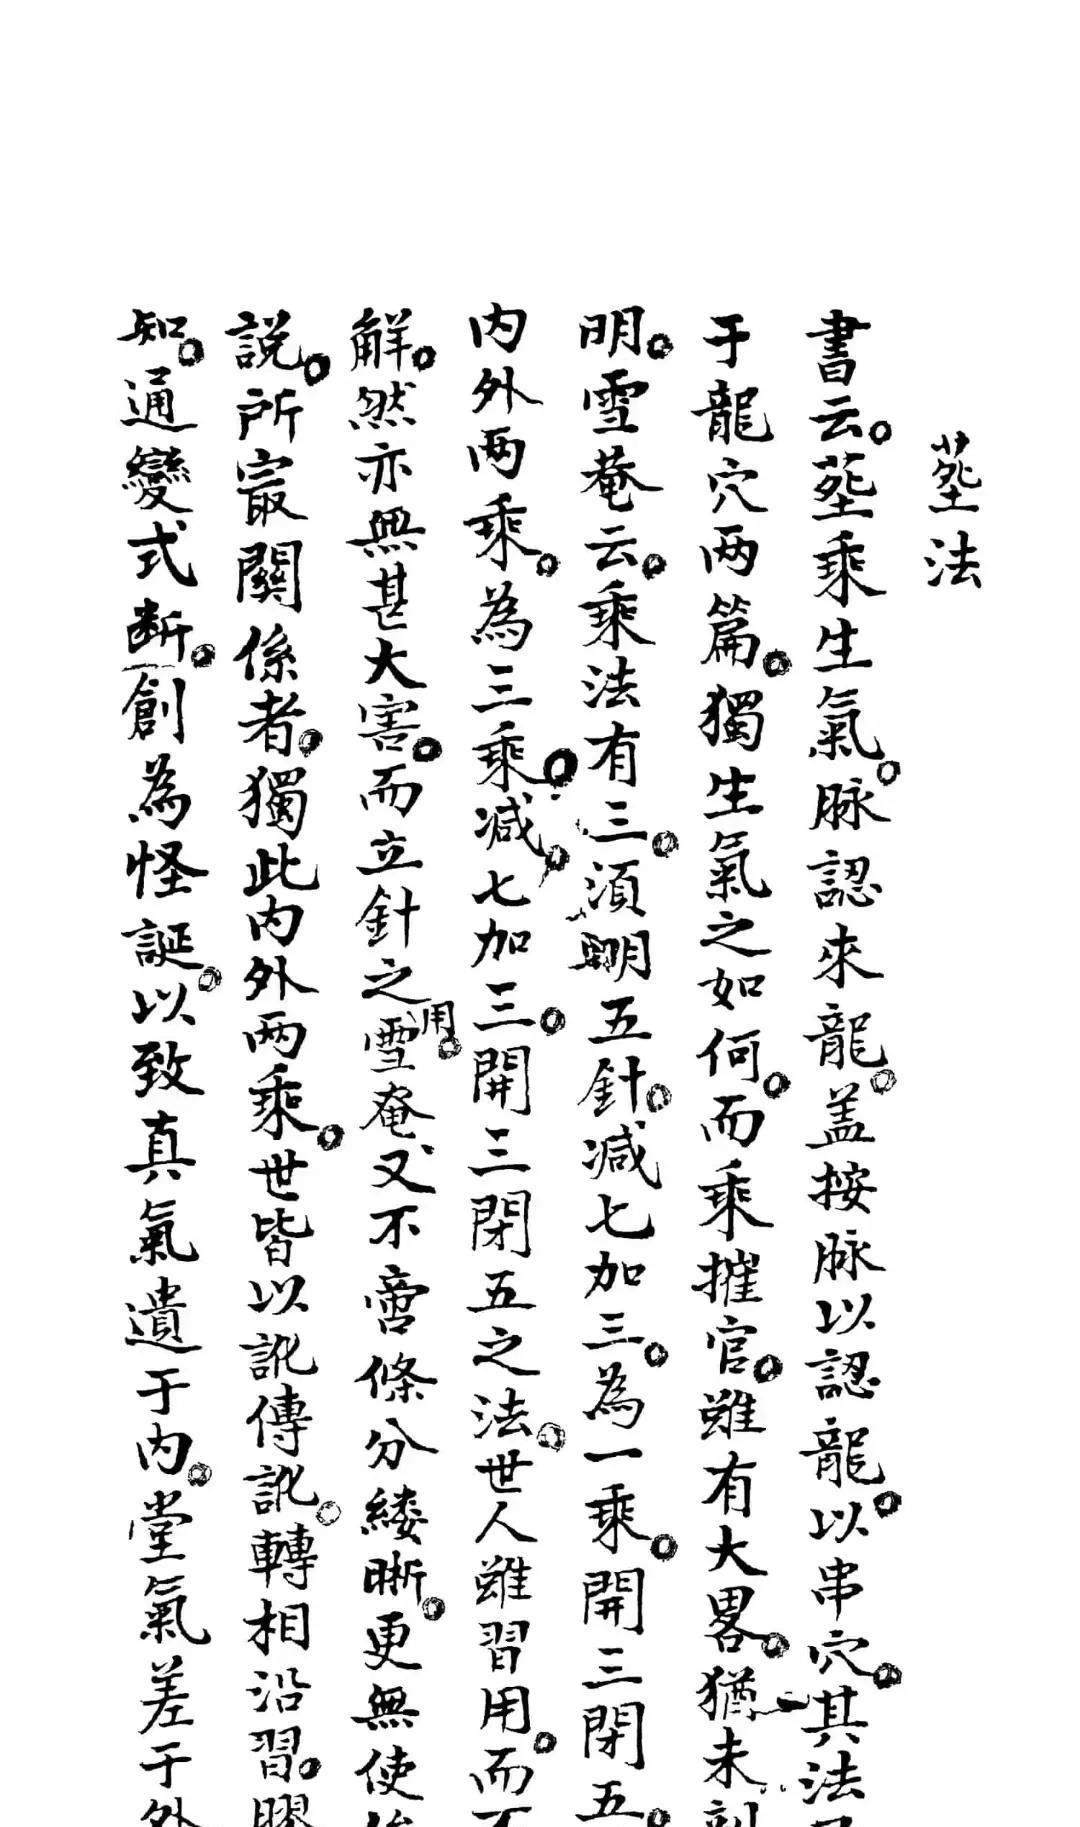 塟法
書云。塟乘生氣。脉認來龍。盖按脉以認龍。以串穴。其法
于龍穴两篇。獨生氣之如何。而乘摧官。雖有大畧。猶未
明。雪菴云。乘法有三。須明五針。减七加三。為一乘。開三閉五。
内外两乘。為三乘。减七加三。開三閉五之法。世人雖習用。而不
解。然亦無甚大害。而立針之用。雪菴又不啻條分縷晰。更無使
説。所㝡關係者。獨此内外两乘。世皆以訛傳訛。轉相沿習。膠
知。通變式断。創為怪誕。以致真氣遺于内。堂氣差于外